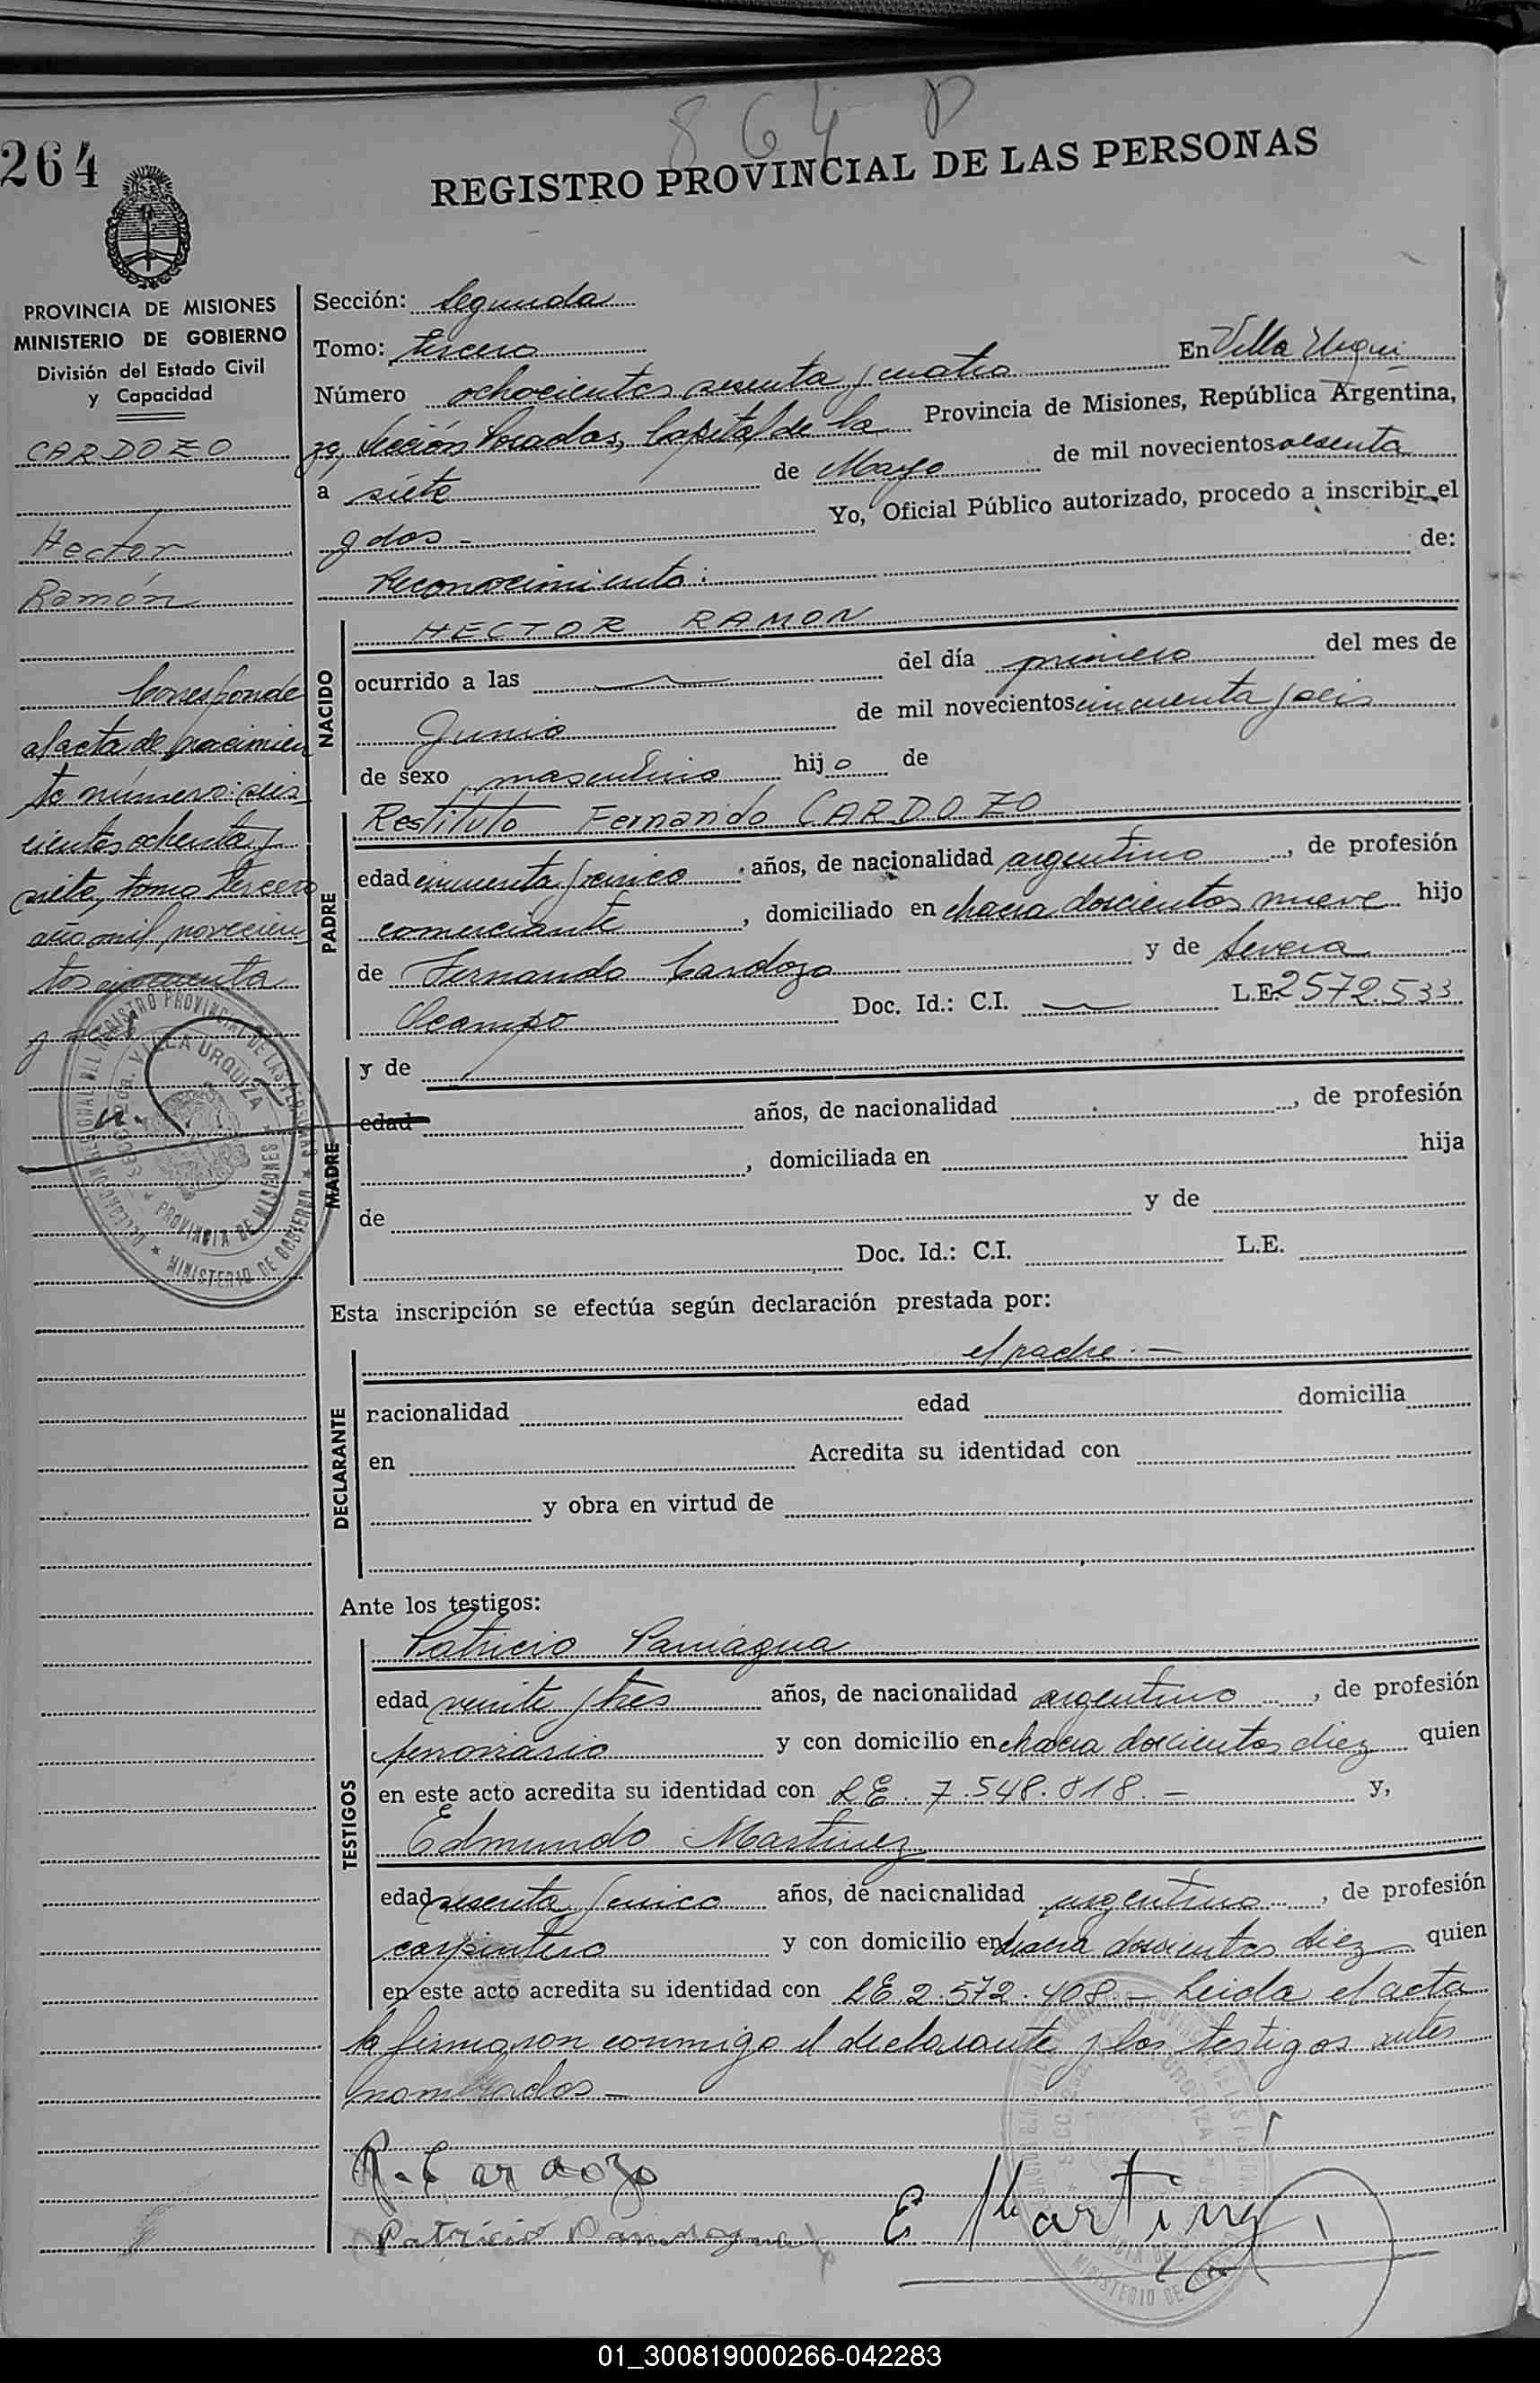 864 D
264
REGISTRO PROVINCIAL DE LAS PERSONAS
PROVINCIA DE MISIONES
MINISTERIO DE GOBIERNO
División del Estado Civil
y Capacidad
CARDOZO
Hector
Ramón
Corresponde
al acta de nacimien
to número: seis
cientos ochenta y
siete, tomo tercero
año mil novecien
tos cincuenta
y seis
Sección: Segunda
Tomo: tercero
En Villa Urqui
Número ochocientos sesenta y cuatro
za, Sección Posadas, Capital de la Provincia de Misiones, República Argentina,
a siete de Mayo de mil novecientos sesenta
y dos - Yo, Oficial Público autorizado, procedo a inscribir el
Reconocimiento: de:
NACIDO
HECTOR RAMON
ocurrido a las — del día primero del mes de
Junio de mil novecientos cincuenta y seis
de sexo masculino hijo de
PADRE
Restituto Fernando CARDOZO
edad cincuenta y cinco años, de nacionalidad argentino, de profesión
comerciante, domiciliado en chacra doscientos nueve hijo
de Fernando Cardozo y de Severa
Ocampo Doc. Id.: C.I. — L.E. 2572.533
MADRE
y de
edad años, de nacionalidad , de profesión
, domiciliada en hija
de y de
Doc. Id.: C.I. L.E.
Esta inscripción se efectúa según declaración prestada por:
DECLARANTE
el padre.-
nacionalidad edad domicilia
en Acredita su identidad con
y obra en virtud de
Ante los testigos:
TESTIGOS
Patricio Paniagua
edad veinte y tres años, de nacionalidad argentino, de profesión
ferroviario y con domicilio en chacra doscientos diez quien
en este acto acredita su identidad con L.E. 7.548.818.- y,
Edmundo Martinez
edad sesenta y cinco años, de nacionalidad argentino, de profesión
carpintero y con domicilio en chacra doscientos diez quien
en este acto acredita su identidad con L.E. 2.572.408.- Leida el acta
la firmaron conmigo el declarante y los testigos antes
nombrados-
R. Cardozo
Patricio Paniagua
E Martinez
VILLA URQUIZA
PROVINCIA DE MISIONES
MINISTERIO DE GOBIERNO
01_300819000266-042283